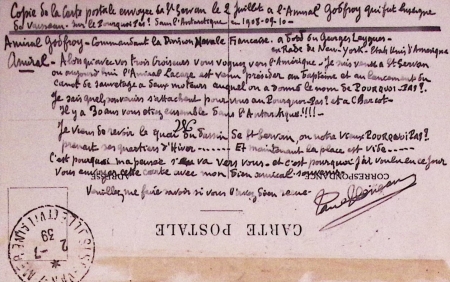 Copie de la Carte postale envoyée de St Servan le 2 Juillet à l'Amiral Godfroy qui fut Enseigne
de Vaisseau sur le Pourquoi Pas? dans l'Antarctique - 1908-09-10 -
Amiral Godfroy - Commandant la Division Navale Française. à bord du Georges Leygues -
en Rade de New-York. Etats Unis d'Amérique
Amiral - Alors qu'avec vos Trois Croiseurs vous voguez vers l'Amérique - Je suis venu à St Servan
où aujourd'hui l'Amiral Lacaze est venu présider au Baptême et au lancement du
Canot de Sauvetage à deux moteurs auquel on a donné le nom de POURQUOI-PAS?
Je sais quels souvenirs s'attachent pour vous au Pourquoi-Pas? et à Charcot -
Il y a 30 ans vous étiez ensemble dans l'Antarctique!!!!
Je viens de revoir le quai du Bassin de St Servan, où votre Vieux POURQUOI PAS?
prenait ses quartiers d'Hiver Et maintenant la place est vide
C'est pourquoi ma pensée va vers vous - et c'est pourquoi j'ai voulu en ce jour
Vous envoyer cette carte avec mon bien amical souvenir
Veuillez me faire savoir si vous l'avez bien reçue
CORRESPONDANCE
ADRESSE
CARTE POSTALE
2 -7
39
ILLE ET VILAINE